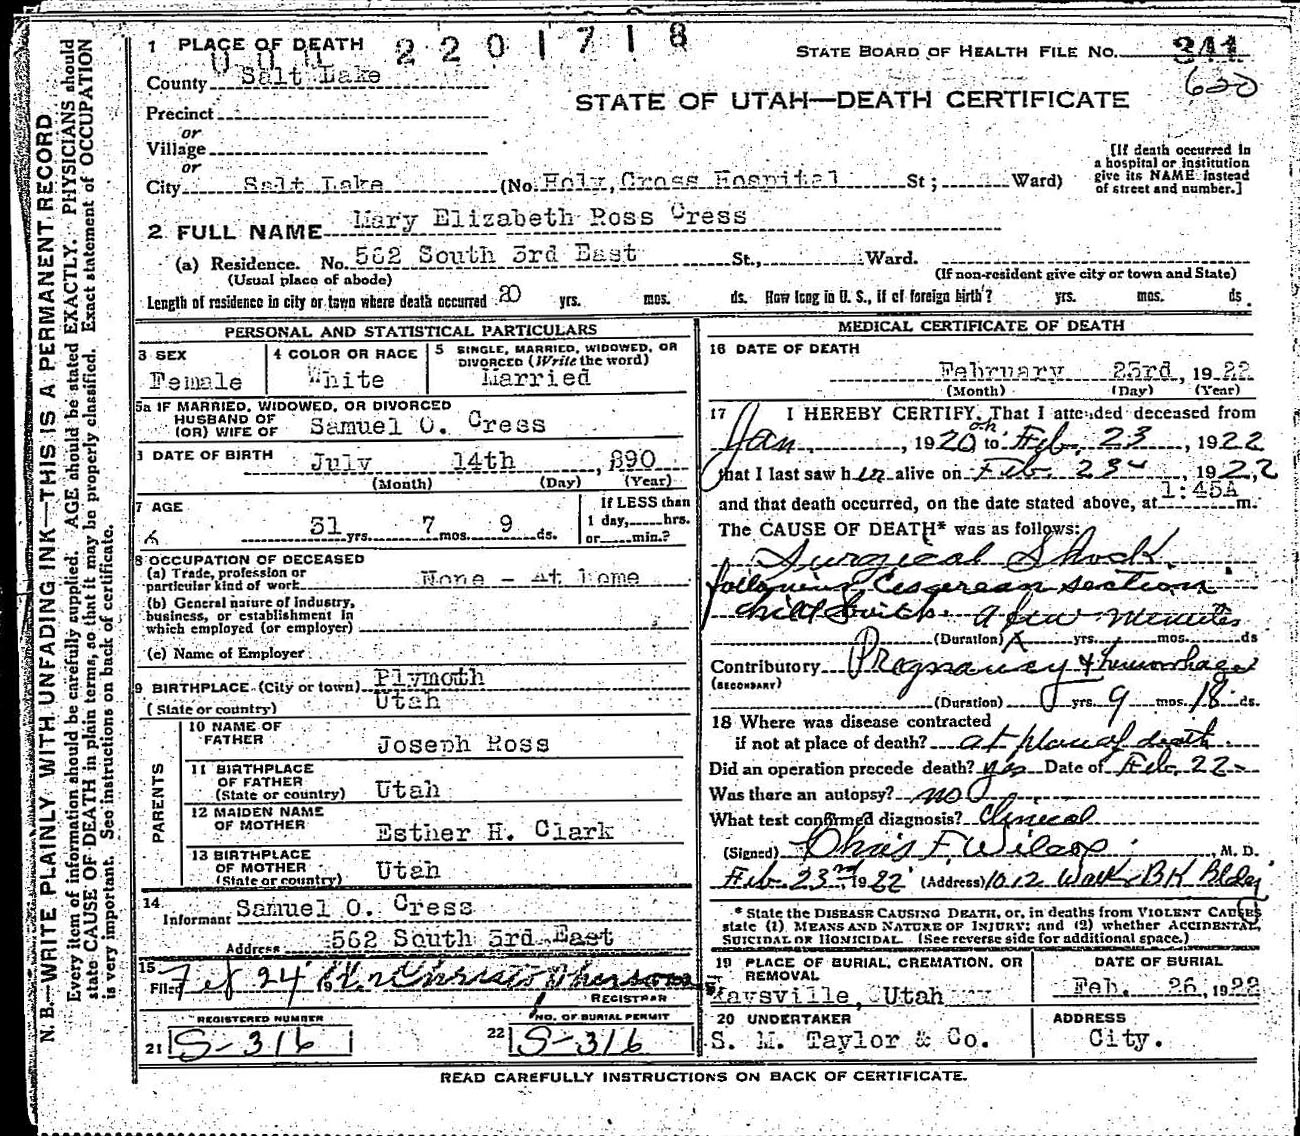 N. B.—WRITE PLAINLY WITH UNFADING INK—THIS IS A PERMANENT RECORD
Every item of information should be carefully supplied. AGE should be stated EXACTLY. PHYSICIANS should
state CAUSE OF DEATH in plain terms, so that it may be properly classified. Exact statement of OCCUPATION
is very important. See instructions on back of certificate.
1 PLACE OF DEATH
2201718
STATE BOARD OF HEALTH FILE NO. 341
620
County Salt Lake
STATE OF UTAH—DEATH CERTIFICATE
Precinct
or
Village
or
[If death occurred in
a hospital or institution
give its NAME instead
of street and number.]
City Salt Lake (No. Holy Cross Hospital St; Ward)
2 FULL NAME Mary Elizabeth Ross Cress
(a) Residence. No. 562 South 3rd East St., Ward.
(Usual place of abode) (If non-resident give city or town and State)
Length of residence in city or town where death occurred 20 yrs. mos. ds. How long in U. S., if of foreign birth? yrs. mos. ds.
PERSONAL AND STATISTICAL PARTICULARS
3 SEX
Female
4 COLOR OR RACE
White
5 SINGLE, MARRIED, WIDOWED, OR
DIVORCED (Write the word)
Married
5a IF MARRIED, WIDOWED, OR DIVORCED
HUSBAND OF
(OR) WIFE OF Samuel O. Cress
DATE OF BIRTH
July 14th, 890
(Month) (Day) (Year)
7 AGE
31 yrs. 7 mos. 9 ds.
If LESS than
1 day, hrs.
or min.?
8 OCCUPATION OF DECEASED
(a) Trade, profession or
particular kind of work None - At home
(b) General nature of industry,
business, or establishment in
which employed (or employer)
(c) Name of Employer
9 BIRTHPLACE (City or town) Plymoth
(State or country) Utah
PARENTS
10 NAME OF
FATHER Joseph Ross
11 BIRTHPLACE
OF FATHER
(State or country) Utah
12 MAIDEN NAME
OF MOTHER Esther H. Clark
13 BIRTHPLACE
OF MOTHER
(State or country) Utah
14
Informant Samuel O. Cress
Address 562 South 3rd East
15
Filed Feb 24
REGISTRAR
REGISTERED NUMBER
21 S-316
NO. OF BURIAL PERMIT
22 S-316
MEDICAL CERTIFICATE OF DEATH
16 DATE OF DEATH
February 23rd, 1922
(Month) (Day) (Year)
17 I HEREBY CERTIFY, That I attended deceased from
Jan, 1920 to on Feb. 23, 1922
that I last saw her alive on Feb. 23, 1922,
and that death occurred, on the date stated above, at 1:45A m.
The CAUSE OF DEATH* was as follows:
Surgical Shock
following Cesarean section
child birth. a few minutes
(Duration) yrs. mos. ds
Contributory Pregnancy & hemorrhage
(SECONDARY)
(Duration) 0 yrs. 9 mos. 18 ds.
18 Where was disease contracted
if not at place of death? at place of death
Did an operation precede death? yes Date of Feb. 22
Was there an autopsy? no
What test confirmed diagnosis? Clinical
(Signed) Chas F. Wilcox, M. D.
Feb 23rd, 1922 (Address) 1012 Walk BK Bldg
* State the DISEASE CAUSING DEATH, or, in deaths from VIOLENT CAUSES
state (1) MEANS AND NATURE OF INJURY; and (2) whether ACCIDENTAL,
SUICIDAL OR HOMICIDAL. (See reverse side for additional space.)
19 PLACE OF BURIAL, CREMATION, OR
REMOVAL
Kaysville, Utah
DATE OF BURIAL
Feb. 26, 1922
20 UNDERTAKER
S. M. Taylor & Co.
ADDRESS
City.
READ CAREFULLY INSTRUCTIONS ON BACK OF CERTIFICATE.